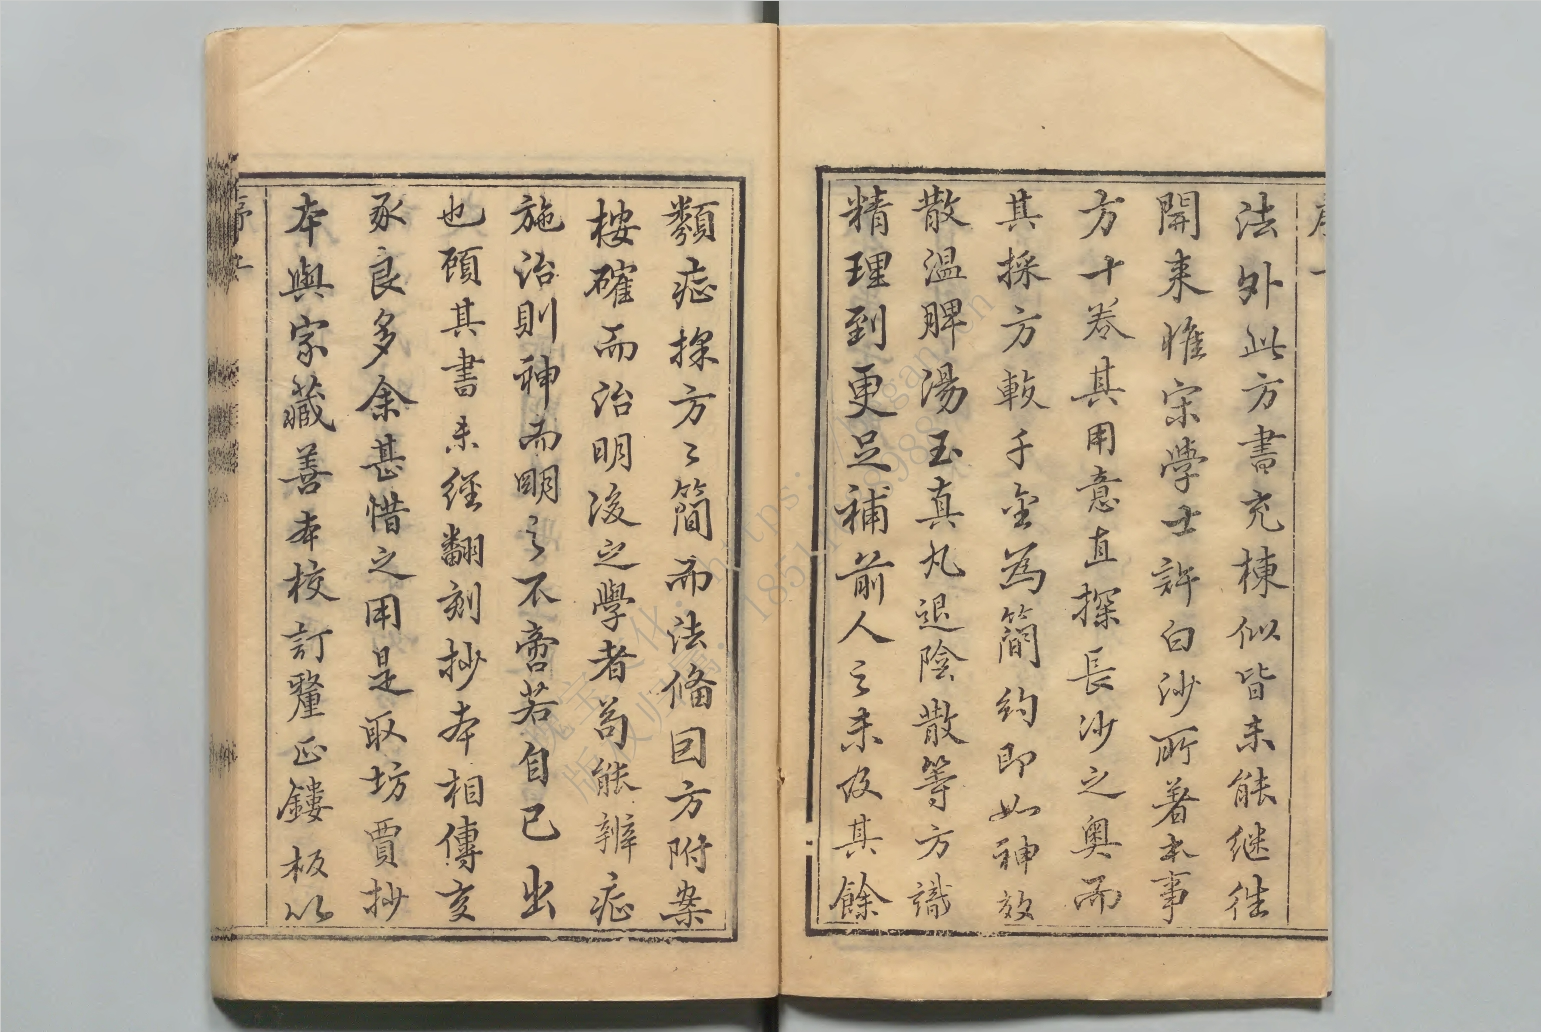 法外此方書充棟似皆未能继往
開来惟宋學士許白沙所著本事
方十卷其用意直探長沙之奥而
其採方較千金為簡約即如神效
散温脾湯玉真丸退陰散等方識
精理到更足補前人之未及其餘
類症採方之簡而法備因方附案
樁確而治明後之學者苟能辨症
施治則神而明之不啻若自己出
也顧其書未經翻刻抄本相傳亥
豕良多余甚惜之用是取坊賈抄
本與家藏善本校訂釐正鏤板以